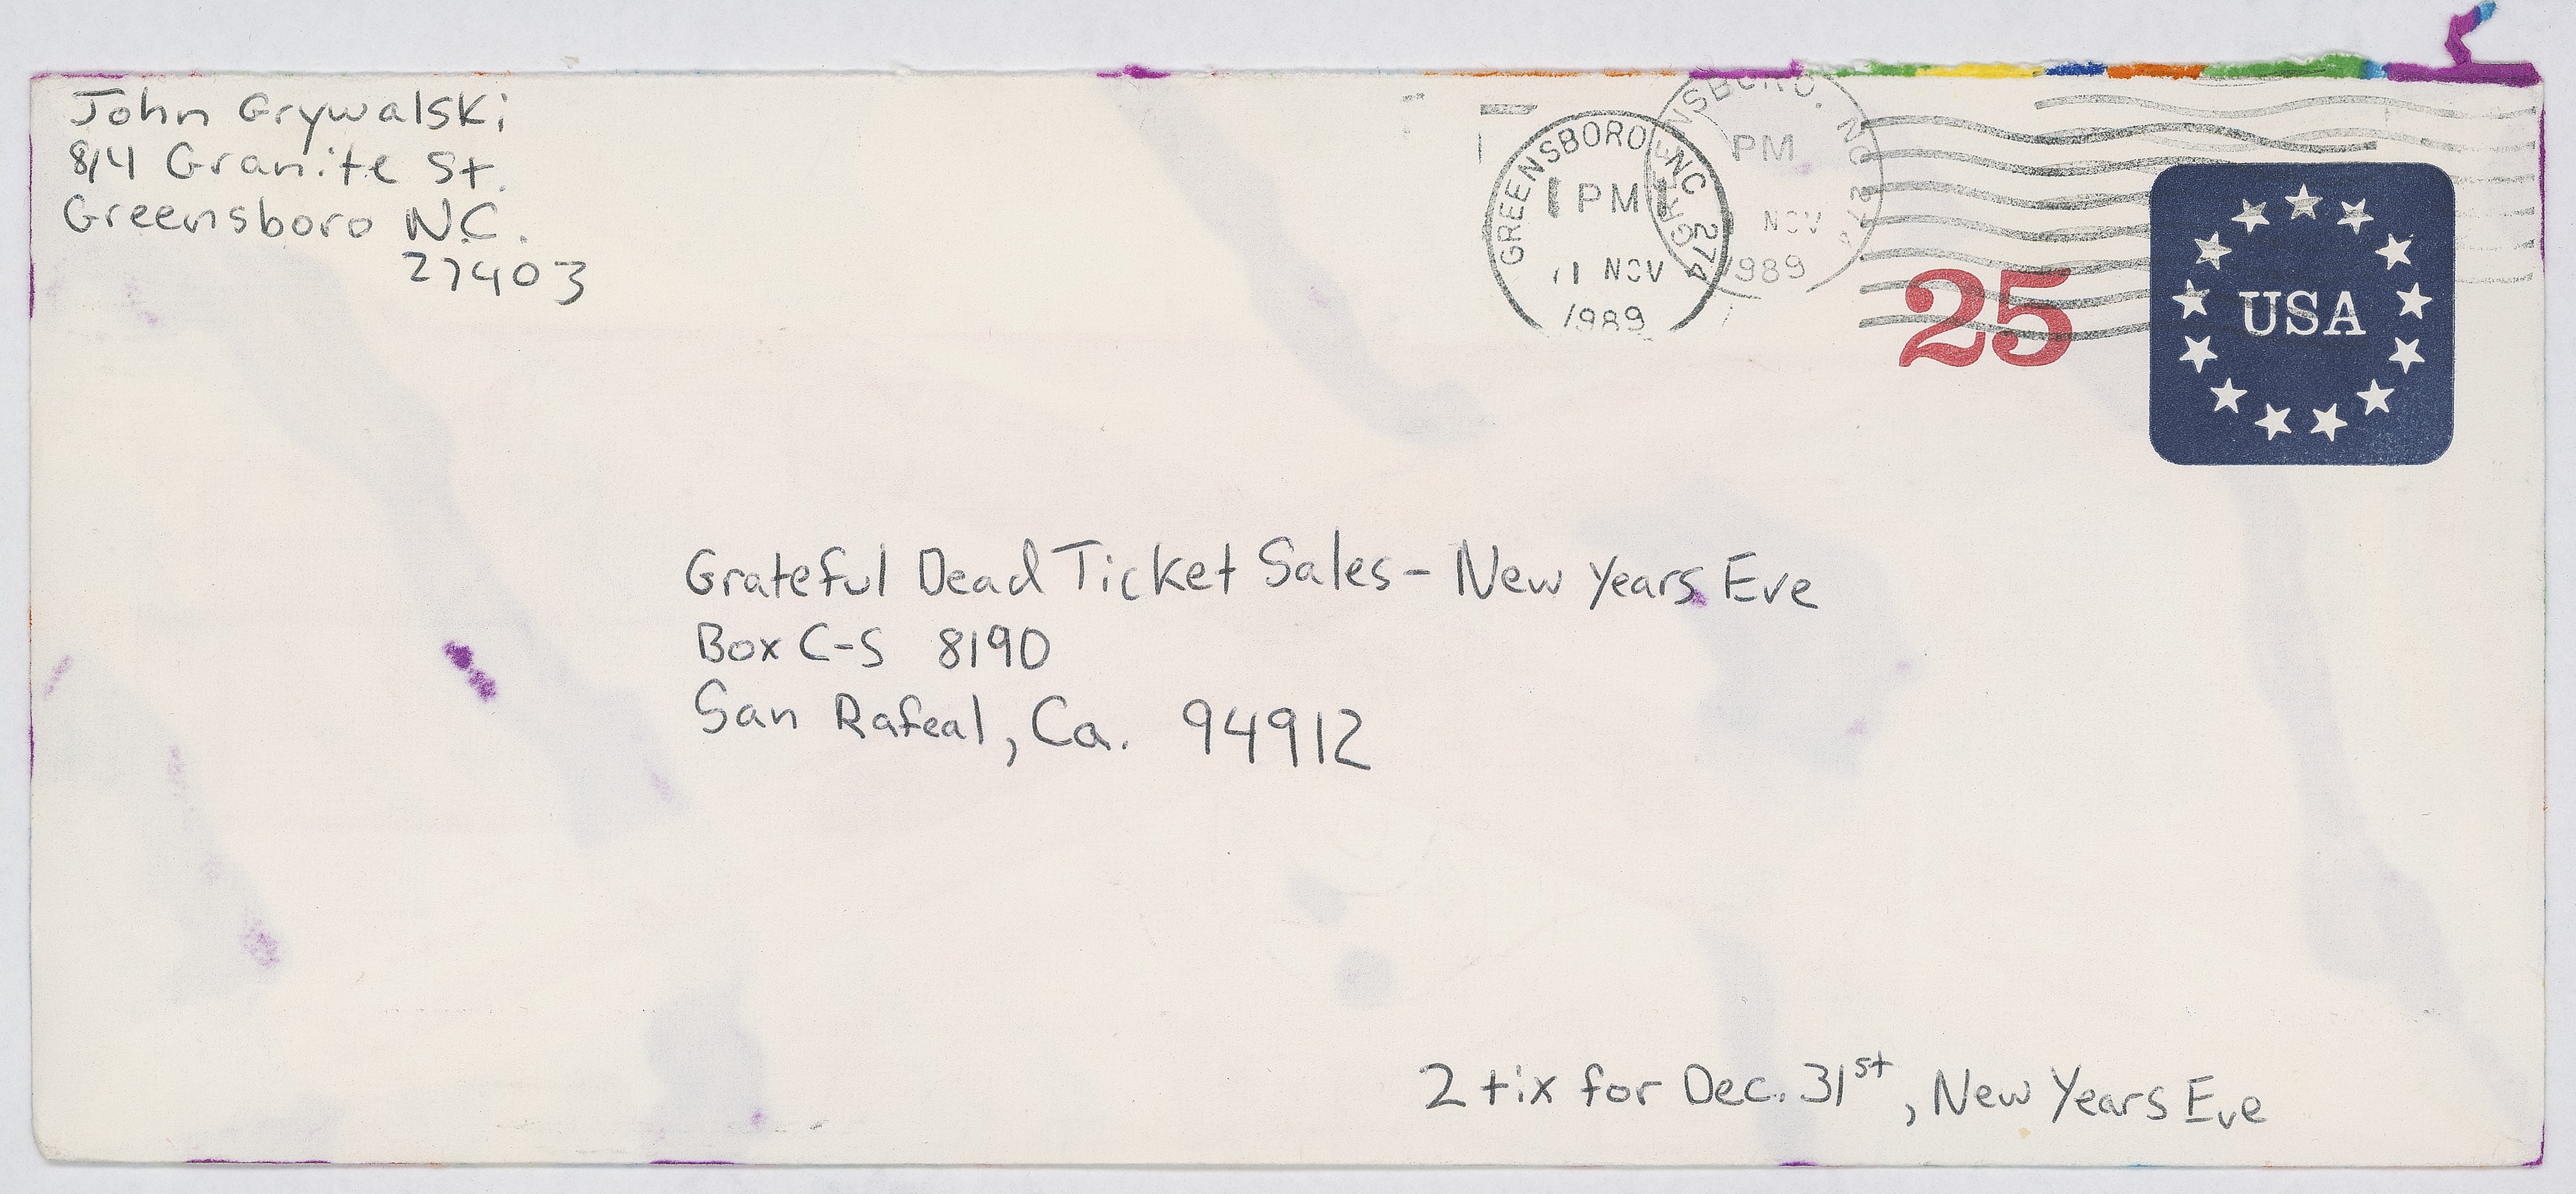 John Grywalski
814 Granite St.
Greensboro N.C.
27403
GREENSBORO NC 274
1 PM
11 NOV
1989
NSBORO, NC 274
PM
NOV
1989
25
USA
Grateful Dead Ticket Sales - New Years Eve
Box C-S 8190
San Rafeal, Ca. 94912
2 tix for Dec. 31st, New Years Eve